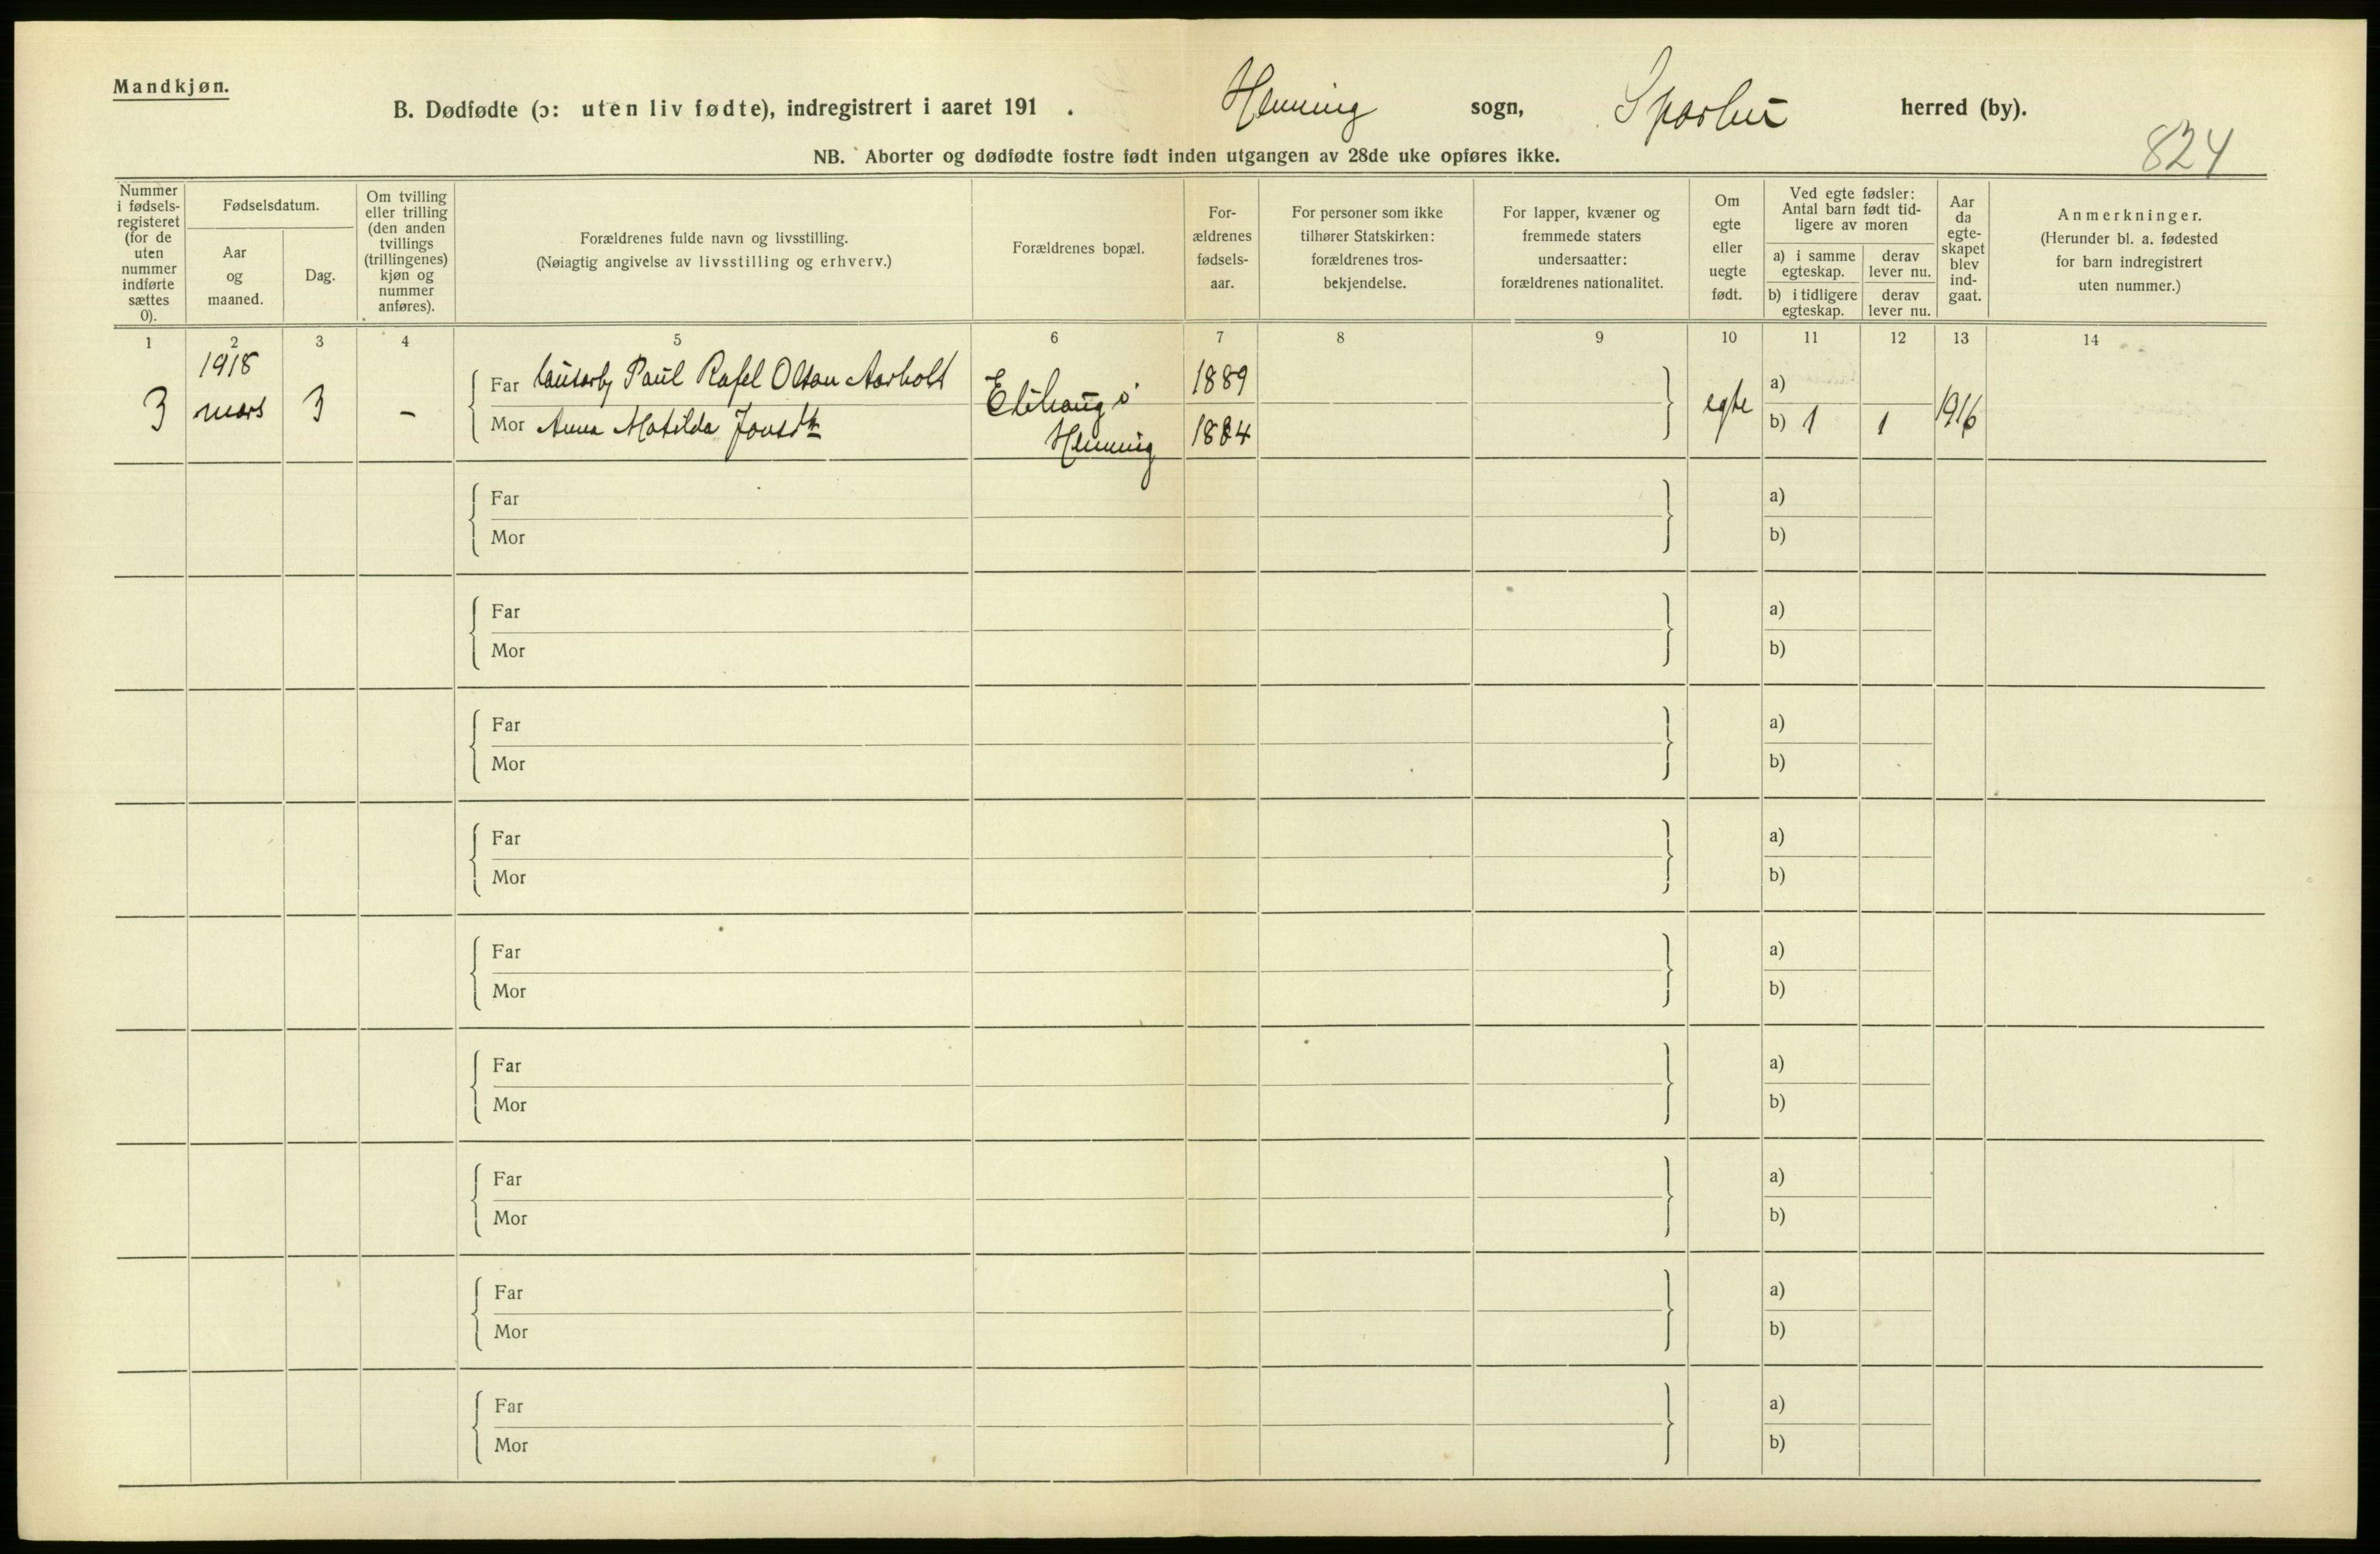 Mandkjøn.
B. Dødfødte (ɔ: uten liv fødte), indregistrert i aaret 191 . Henning sogn, Sparbu herred (by).
824
NB. Aborter og dødfødte fostre født inden utgangen av 28de uke opføres ikke.
Nummer i fødsels-registeret (for de uten nummer indførte sættes 0).
Fødselsdatum.
Aar og maaned.
Dag.
Om tvilling eller trilling (den anden tvillings (trillingenes) kjøn og nummer anføres).
Forældrenes fulde navn og livsstilling.
(Nøiagtig angivelse av livsstilling og erhverv.)
Forældrenes bopæl.
For-ældrenes fødsels-aar.
For personer som ikke tilhører Statskirken: forældrenes tros-bekjendelse.
For lapper, kvæner og fremmede staters undersaatter: forældrenes nationalitet.
Om egte eller uegte født.
Ved egte fødsler: Antal barn født tid-ligere av moren
a) i samme egteskap.
derav lever nu.
b) i tidligere egteskap.
derav lever nu.
Aar da egte-skapet blev ind-gaat.
Anmerkninger.
(Herunder bl. a. fødested for barn indregistrert uten nummer.)
1 2 3 4 5 6 7 8 9 10 11 12 13 14
1918
3 mars 3 -
Far Paul Rafel Olsen Aarholt 1889
Mor Anna Matilda Jonsdtr
Henning 1884
egte
a)
b) 1 1 1916
Far a)
Mor b)
Far a)
Mor b)
Far a)
Mor b)
Far a)
Mor b)
Far a)
Mor b)
Far a)
Mor b)
Far a)
Mor b)
Far a)
Mor b)
Far a)
Mor b)